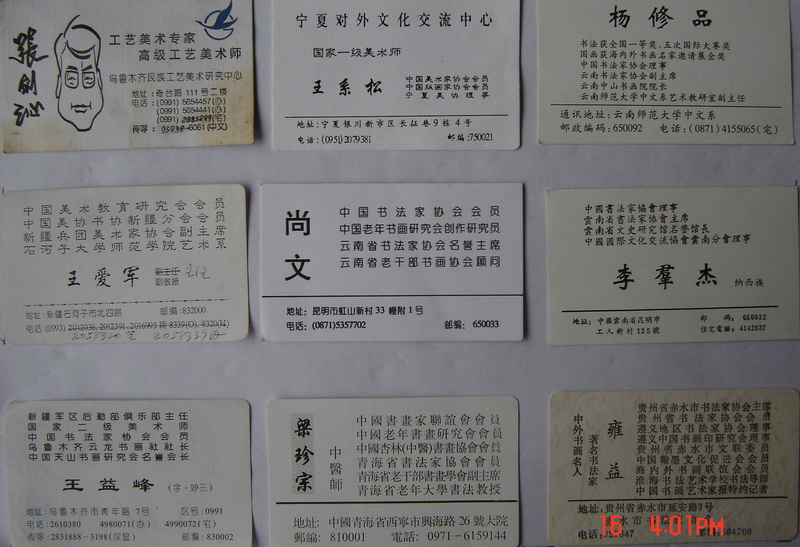 張创沁
工艺美术专家
高级工艺美术师
乌鲁木齐民族工艺美术研究中心
地址:奇台路 111 号二楼
电话:(0991) 5854457(办)
(0991) 5854441(办)
(0991)
6061(中文)
宁夏对外文化交流中心
国家一级美术师
王系松
中国美术家协会会员
中国版画家协会会员
宁夏美协理事
地址:宁夏银川新市区长征巷9栋4号
电话:(0951)2079381 邮编:750021
杨修品
书法获全国一等奖、五次国际大赛奖
国画获海内外书画名家邀请展金奖
中国书法家协会理事
云南书法家协会副主席
云南中山书画院院长
云南师范大学中文系艺术教研室副主任
通讯地址:云南师范大学中文系
邮政编码:650092 电话:(0871)4155065(宅)
中国美术教育研究会会员
中国美协书协新疆分会会员
新疆兵团美术家协会副主席
石河子大学师范学院艺术系
王爱军 副主任
副教授
地址:新疆石河子市北四路 邮编:832000
电话:(0993) 2012036, 2012391, 2016995 转 8339(O), 8320(H)
尚文
中国书法家协会会员
中国老年书画研究会创作研究员
云南省书法家协会名誉主席
云南省老干部书画协会顾问
地址: 昆明市虹山新村 33 幢附 1 号
电话:(0871)5357702 邮编: 650033
中國書法家協會理事
雲南省書法家協會主席
雲南省文史研究館名誉館長
中國國際文化交流協會雲南分會理事
李羣杰 納西族
地址: 中國雲南省昆明市 郵碼: 650032
工人新村125號 住宅電話: 4142037
新疆军区后勤部俱乐部主任
国家二级美术师
中国书法家协会会员
乌鲁木齐云龙书画社社长
中国天山书画研究会名誉会长
王益峰 (字·妙三)
地址:乌鲁木齐市青年路 7号 区号:0991
电话:2610380 4980071(办) 4990072(宅)
传呼:2831888－3198(汉显) 邮编:830002
梁珍宗
中醫師
中國書畫家聯誼會會員
中國老年書畫研究會會員
中國杏林(中醫)書畫協會會員
青海省書法家協會會員
青海省老干部書畫學會副主席
青海省老年大學書法教授
地址: 中國青海省西寧市興海路 26 號大院
郵編: 810001 電話: 0971－6159144
中外书画名人
著名书法家
雍益
贵州省赤水市书法家协会主席
贵州省书法家协会会员
遵义地区书法家协会理事
遵义中国书画印研究会理事
贵州省赤水市文联委员
中国翰墨文化促进会会员
海内外书画联谊会会员
淮海书法艺术学校书法导师
中国书画艺术家报特约记者
地址:贵州省赤水市延安路3号
16 4:01PM